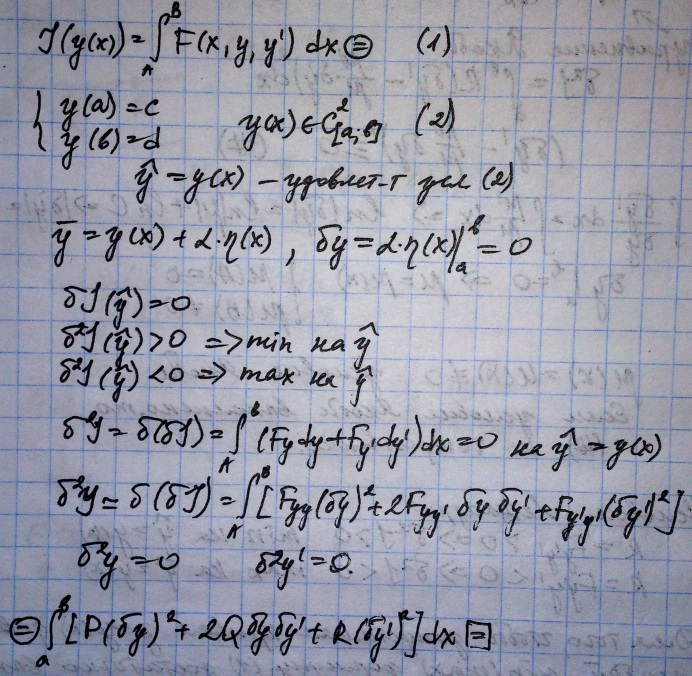 J(y(x)) = ∫_A^B F(x, y, y') dx ⊜ (1)
{ y(a) = c
y(b) = d y(x) ∈ C²[a;b] (2)
ŷ = y(x) – удовлет-т усл (2)
ȳ = y(x) + α·η(x), δy = α·η(x)|_a^b = 0
δJ(ŷ) = 0
δ²J(ŷ) > 0 => min на ŷ
δ²J(ŷ) < 0 => max на ŷ
δ²J = δ(δJ) = ∫_A^B (Fy dy + Fy' dy') dx = 0 на ŷ = y(x)
δ²y = δ(δJ) = ∫_A^B [Fyy(δy)² + 2Fyy' δy δy' + Fy'y'(δy')²]
δ²y = 0 δ²y' = 0.
⊜ ∫_a^B [P(δy)² + 2Qδyδy' + R(δy')²] dx ⊟